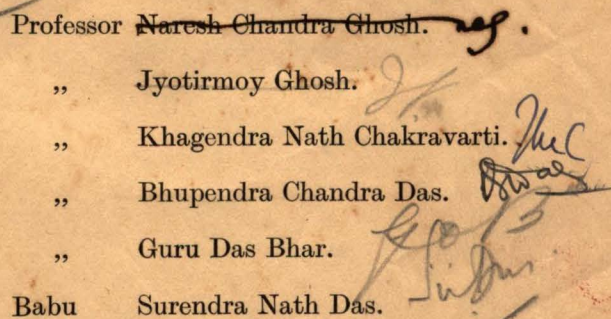 Professor Naresh Chandra Ghosh.
„ Jyotirmoy Ghosh.
„ Khagendra Nath Chakravarti.
„ Bhupendra Chandra Das.
„ Guru Das Bhar.
Babu Surendra Nath Das.